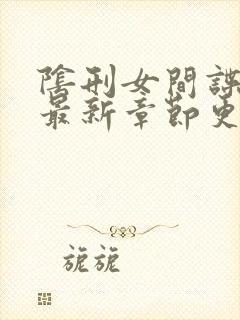 陰刑女間諜
最新章節更
旎旎